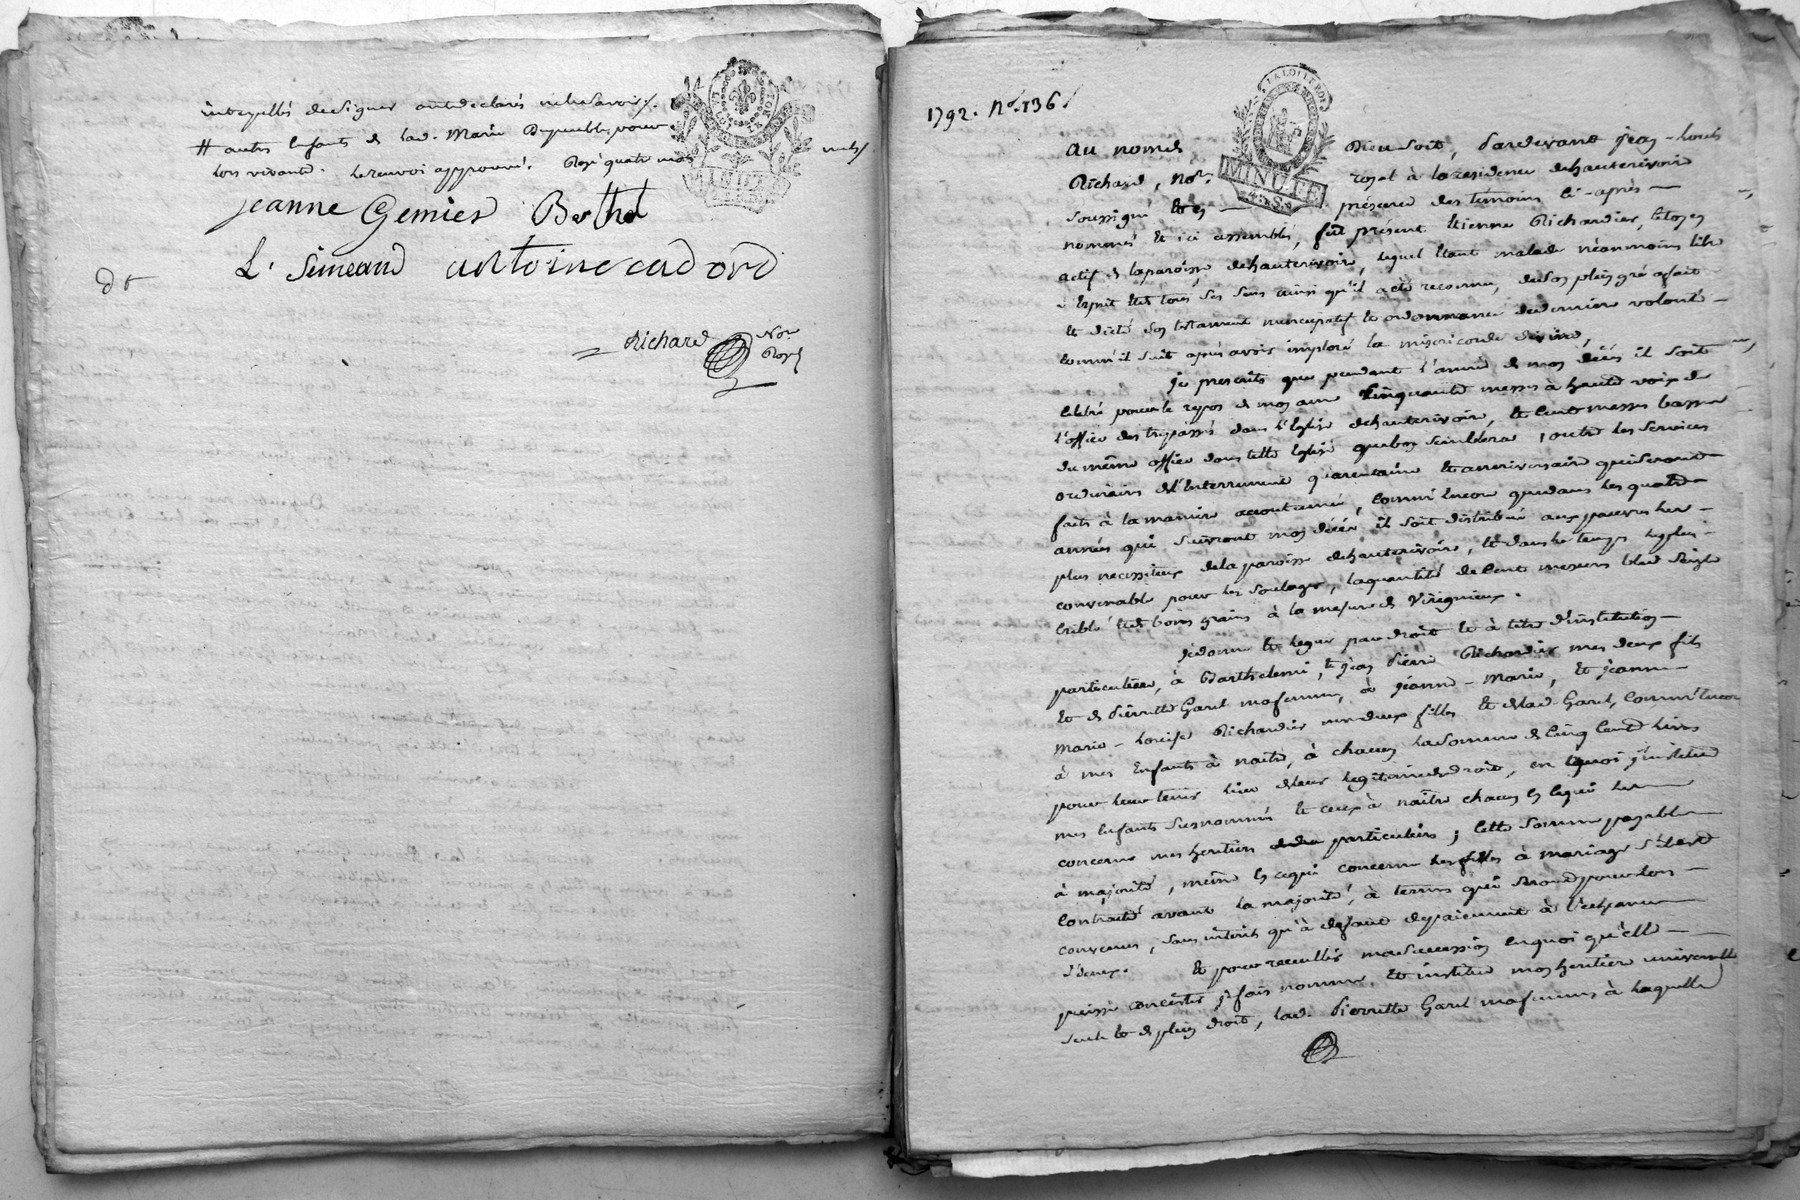 interpellés de signer ont declarés ne le savoir /.
# autres Enfants de lad. Marie
lors vivants. le renvoi approuvé. Rayé quatre mots nuls /
jeanne Gemier Berthol
L. Simeand antoine cadord
Richard Nore
Royal
1792. No. 136.
LA LOI LE ROI
MINUTE
4. S.
au nom de Dieu soit, Pardevant jean-Louis
Richard, Nore. royal à la residence de hauterivoire
soussigné et en présence des temoins ci-après
nommés et ici assemblés, fut présent Etienne Richardier, citoyen
actif de la paroisse de hauterivoire, lequel étant malade néanmoins libre
d'Esprit et de tous ses sens ainsi qu'il acte reconnu, de son plein gré a fait
et dicté son testament nuncupatif et ordonnance de derniere volonté
comm'il suit après avoir imploré la misericorde divine,
je prescrits que pendant l'année de mon décès il soit
célébré pour le repos de mon ame cinquante messes à haute voix de
l'office des trepassés dans l'Eglise de hauterivoire, et cent messes basses
du même office dans telle Eglise que bon semblera, outre les services
ordinaires d'Enterrement quarantaine et anniversaire qui seront
faits à la maniere accoutumée, comm'encore que dans les quatre
années qui suivront mon décès il soit distribué aux pauvres les
plus necessiteux de la paroisse de hauterivoire, et dans le temps le plus
convenable pour les soulager, la quantité de cent mesures bled seigle
criblé et de bons grains à la mesure de Virignieux.
je donne et legue par droit et à titre d'institution
particuliere, à Barthelemi, et jean Pierre Richardier mes deux fils
et de Pierrette Garel ma femme, à jeanne-Marie, et jeanne
Marie-Louise Richardier mes deux filles et de lad. Garel, comm'encor
à mes Enfants à naitre, à chacun la somme de cinq cent livres
pour leur tenir lieu de leur legitime de droit, en quoi j'institue
mes enfants susnommés et ceux à naître chacun en ce qui les
concerne mes heritiers particuliers; cette somme payable
à majorité, même en ce qui concerne les filles à mariage s'il est
contracté avant la majorité, à termes qui seront pour lors
convenus, sans interêts qu'à defaut de paiement à l'echeance
d'iceux. Et pour recueillir ma succession en quoi qu'elle
puisse consister, je fais nomme, et institue mon heritiere universelle
seule et de plein droit, lad. Pierrette Garel ma femme à laquelle